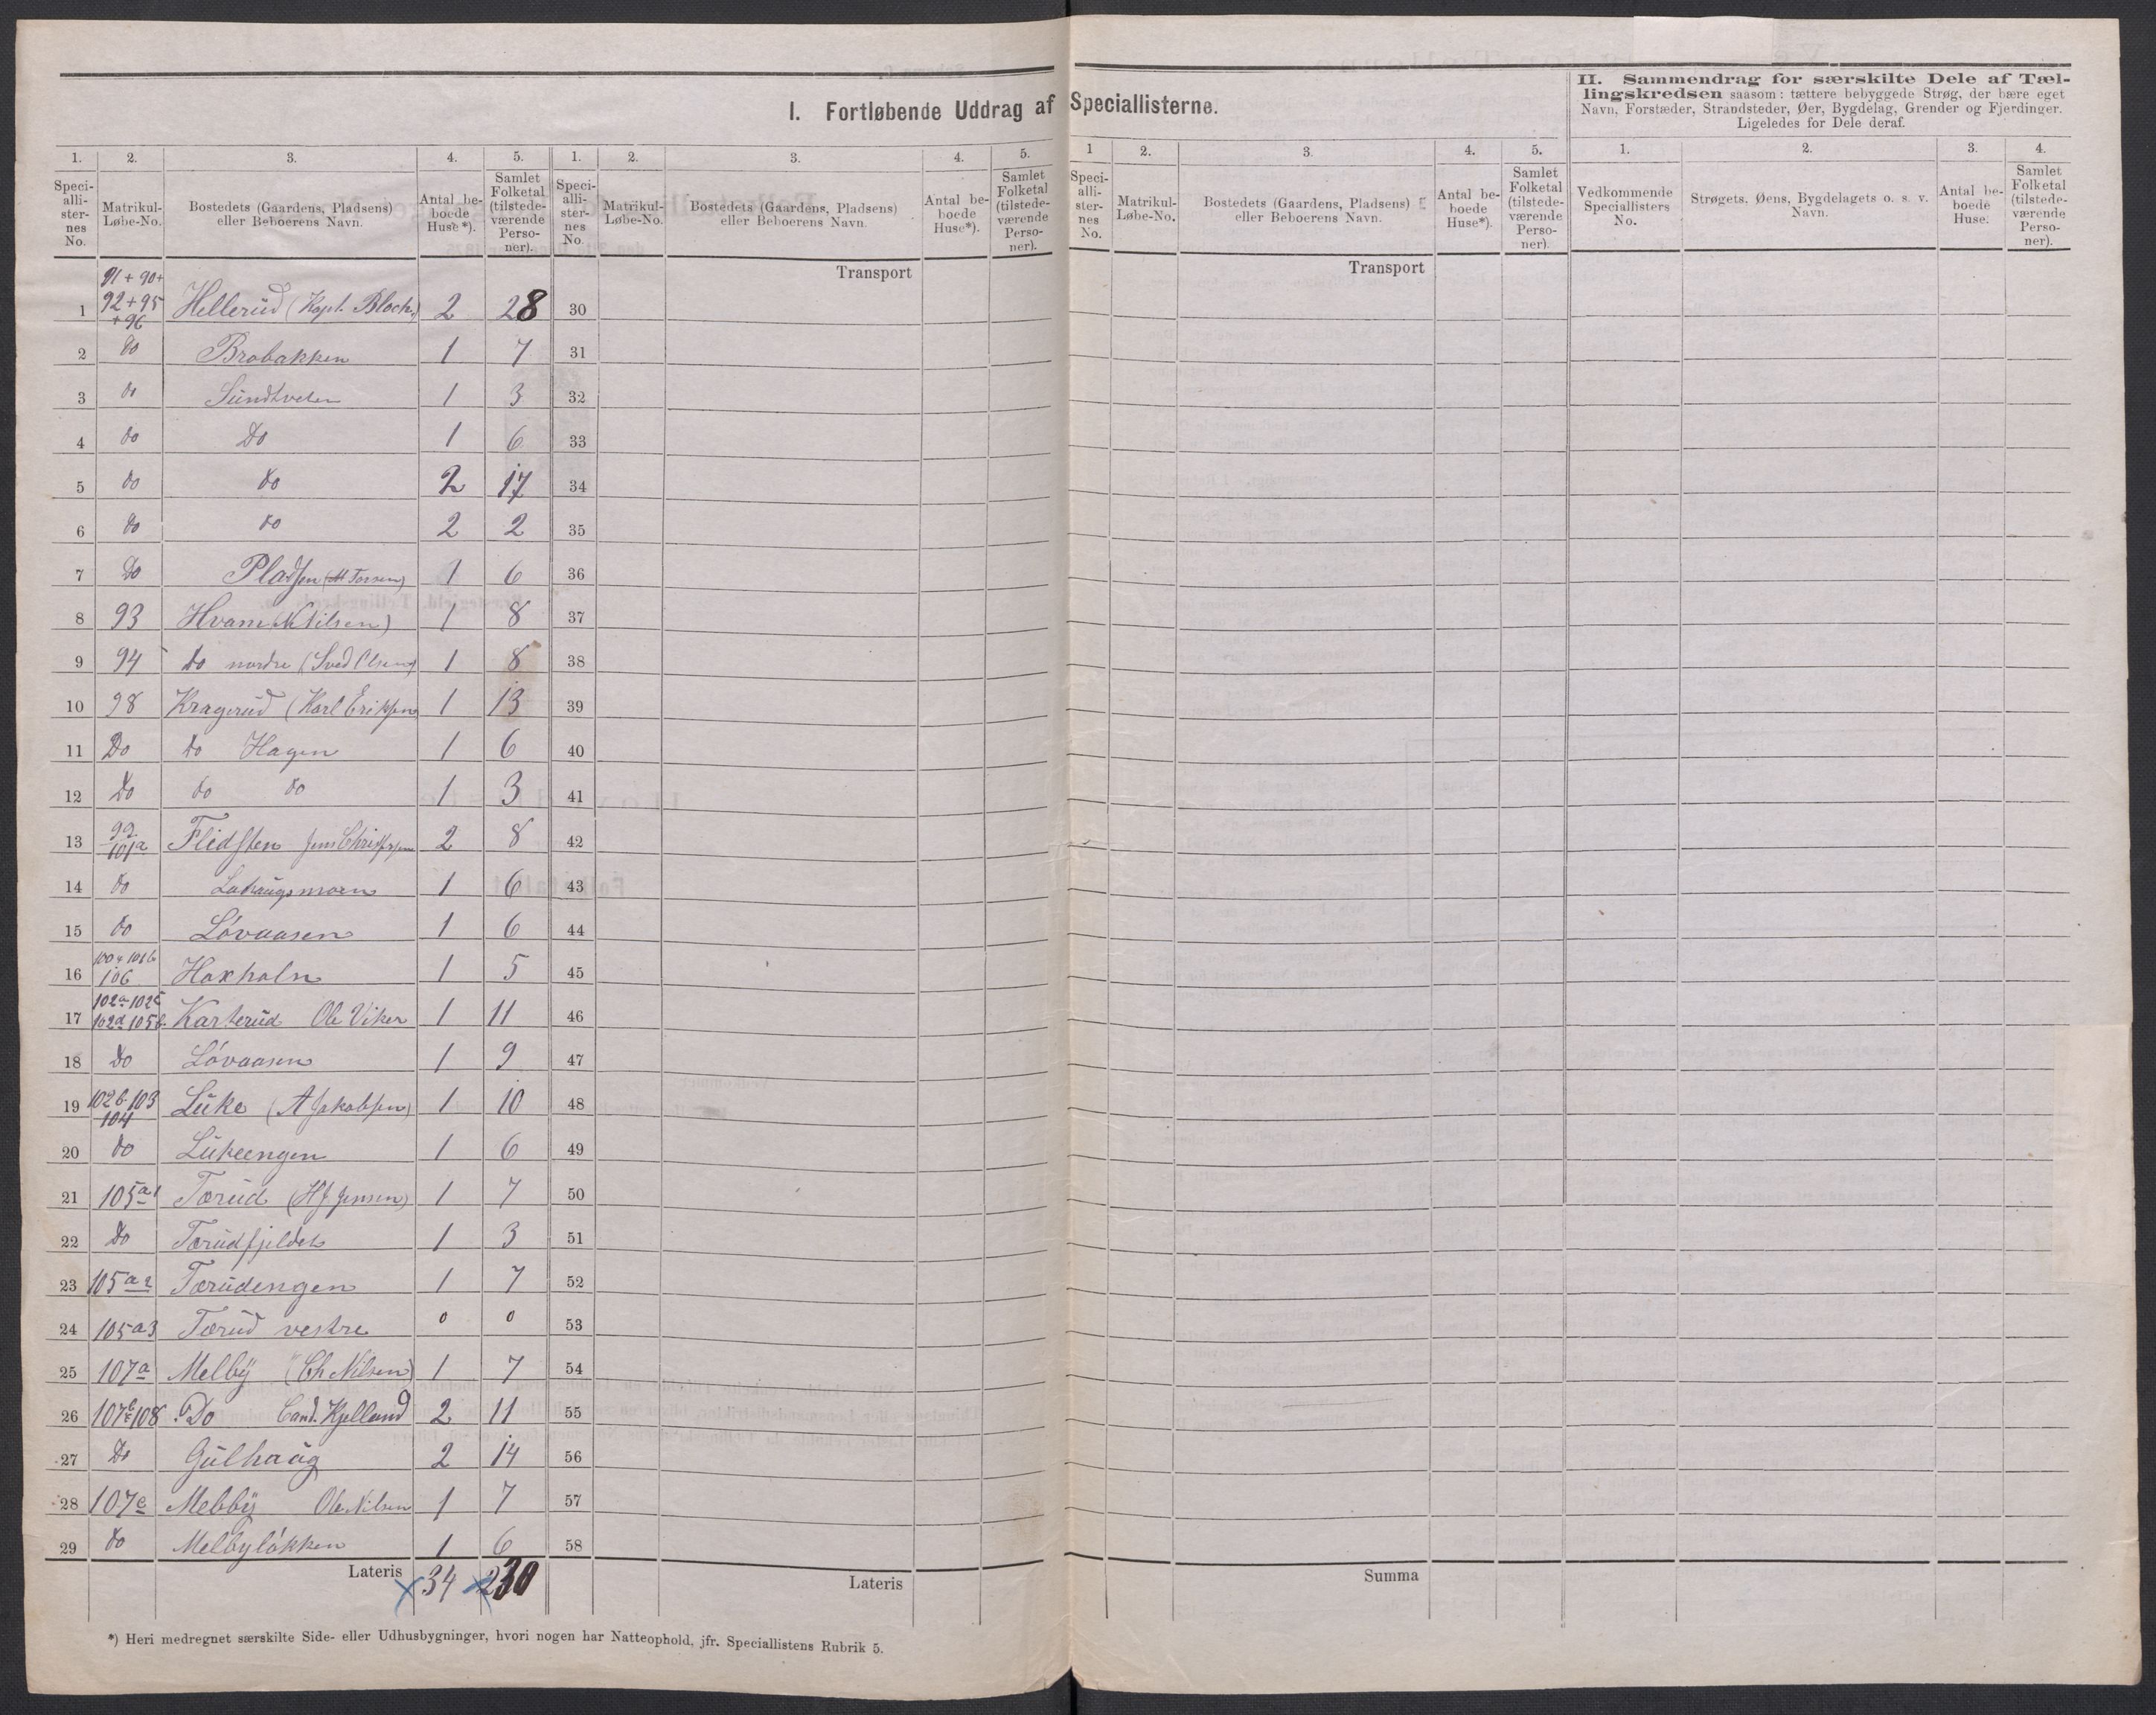 I. Fortløbende Uddrag af Speciallisterne.
II. Sammendrag for særskilte Dele af Tæl-
lingskredsen saasom: tættere bebyggede Strøg, der bære eget
Navn, Forstæder, Strandsteder, Øer, Bygdelag, Grender og Fjerdinger.
Ligeledes for Dele deraf.
1. 2. 3. 4. 5. 1. 2. 3. 4. 5. 1 2. 3. 4. 5. 1. 2. 3. 4.
Speci-
alli-
ster-
nes
No.
Matrikul-
Løbe-No.
Bostedets (Gaardens, Pladsens)
eller Beboerens Navn.
Antal be-
boede
Huse*).
Samlet
Folketal
(tilstede-
værende
Perso-
ner).
Speci-
alli-
ster-
nes
No.
Matrikul-
Løbe-No.
Bostedets (Gaardens, Pladsens)
eller Beboerens Navn.
Antal be-
boede
Huse*).
Samlet
Folketal
(tilstede-
værende
Perso-
ner).
Speci-
alli-
ster-
nes
No.
Matrikul-
Løbe-No.
Bostedets (Gaardens, Pladsens)
eller Beboerens Navn.
Antal be-
boede
Huse*).
Samlet
Folketal
(tilstede-
værende
Perso-
ner).
Vedkommende
Speciallisters
No.
Strøgets, Øens, Bygdelagets o. s. v.
Navn.
Antal be-
boede
Huse.
Samlet
Folketal
(tilstede-
værende
Perso-
ner).
Transport Transport
91 + 90+
92 + 95
+ 96
1 Hellerud (Kapt. Bloch) 2 28 30
2 do Brobakken 1 7 31
3 do Sundtveten 1 3 32
4 do Do 1 6 33
5 do do 2 17 34
6 do do 2 2 35
7 Do Pladsen 1 6 36
8 93 Hvam (N Nilsen) 1 8 37
9 94 do nordre (Olsen) 1 8 38
10 98 Kragerud (Karl Eriksen) 1 13 39
11 Do do Hagen 1 6 40
12 Do do do 1 3 41
13 99 101a Fledsten Jens 2 8 42
14 do 1 6 43
15 do Lóvaasen 1 6 44
16 100 + 101b 106 Haxholn 1 5 45
17 102a-102c 102d 105b Karterud Ole Viker 1 11 46
18 Do Lóvaasen 1 9 47
19 102b-103 104 Luke (A Jakobsen) 1 10 48
20 do Lukeengen 1 6 49
21 105a1 Torud (H J Jensen) 1 7 50
22 Do Torudfjeldet 1 3 51
23 105a2 Torudengen 1 7 52
24 105a3 Torud vestre 0 0 53
25 107a Melby (Ch Nilsen) 1 7 54
26 107b 108 Do Cand. Kjelland 2 11 55
27 Do Gulhaug 2 14 56
28 107c Melby Ole Nilsen 1 7 57
29 do Melbylókken 1 6 58
Lateris 34 230 Lateris Summa
*) Heri medregnet særskilte Side- eller Udhusbygninger, hvori nogen har Natteophold, jfr. Speciallistens Rubrik 5.